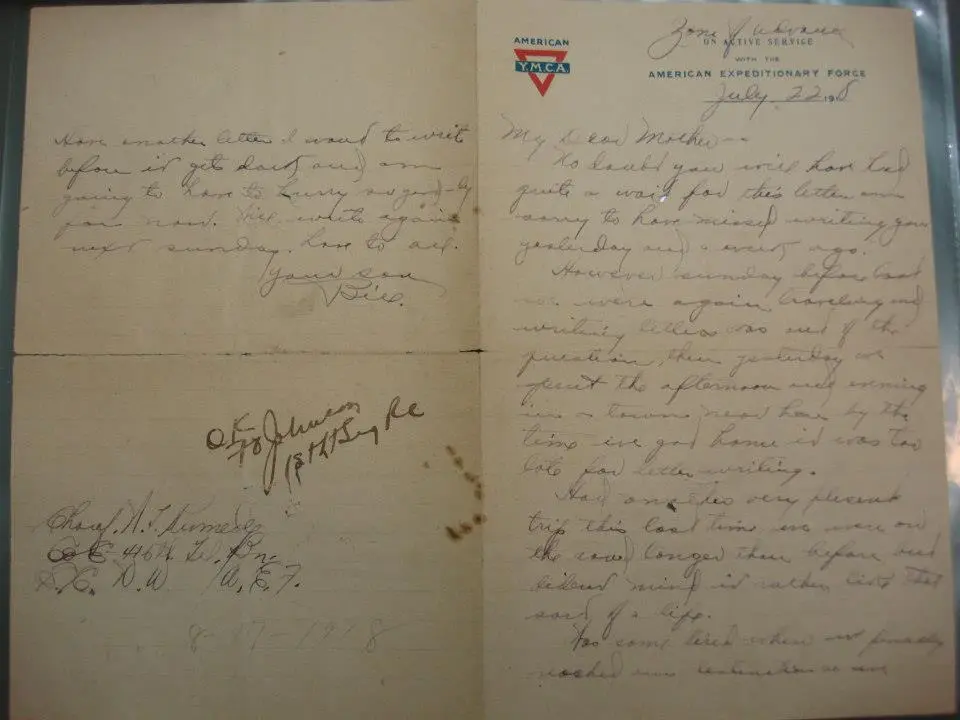 AMERICAN
Y.M.C.A.
Zone of Advance
ON ACTIVE SERVICE
WITH THE
AMERICAN EXPEDITIONARY FORCE
July 22 1918
My Dear Mother—
No doubt you will have had
quite a wait for this letter am
sorry to have missed writing you
yesterday and a week ago.
However sunday before last
we were again traveling and
writing letters was out of the
question, then yesterday we
spent the afternoon and evening
in a town near here by the
time we got home it was too
late for letter writing.
Had another very plesent
trip this last time we were on
the road longer than before but
didnt mind it rather like that
sort of a life.
Was some tired when we finally
reached our destination as we
Have another letter I want to write
before it gets dark and am
going to have to hurry so good-by
for now. Will write again
next sunday. Love to all.
Your son
Bill.
OK
Johnson
Chauf. W. F.
Co E 416th Tel. Bn.
S.C. N.A. A.E.F.
8-17-1918